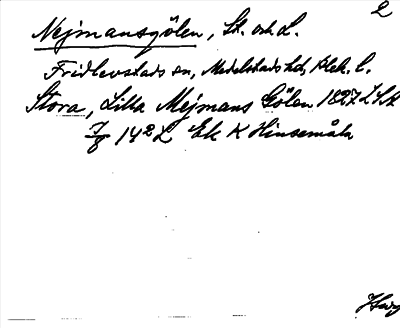 2
Nejmansgölen, St. och L.
Fridlevstads sn, Medelstads hd, Blek. l.
Stora, Lilla Mejmans Gölen 1827 LSA
I/8 142 L Ek K Hinsemåla